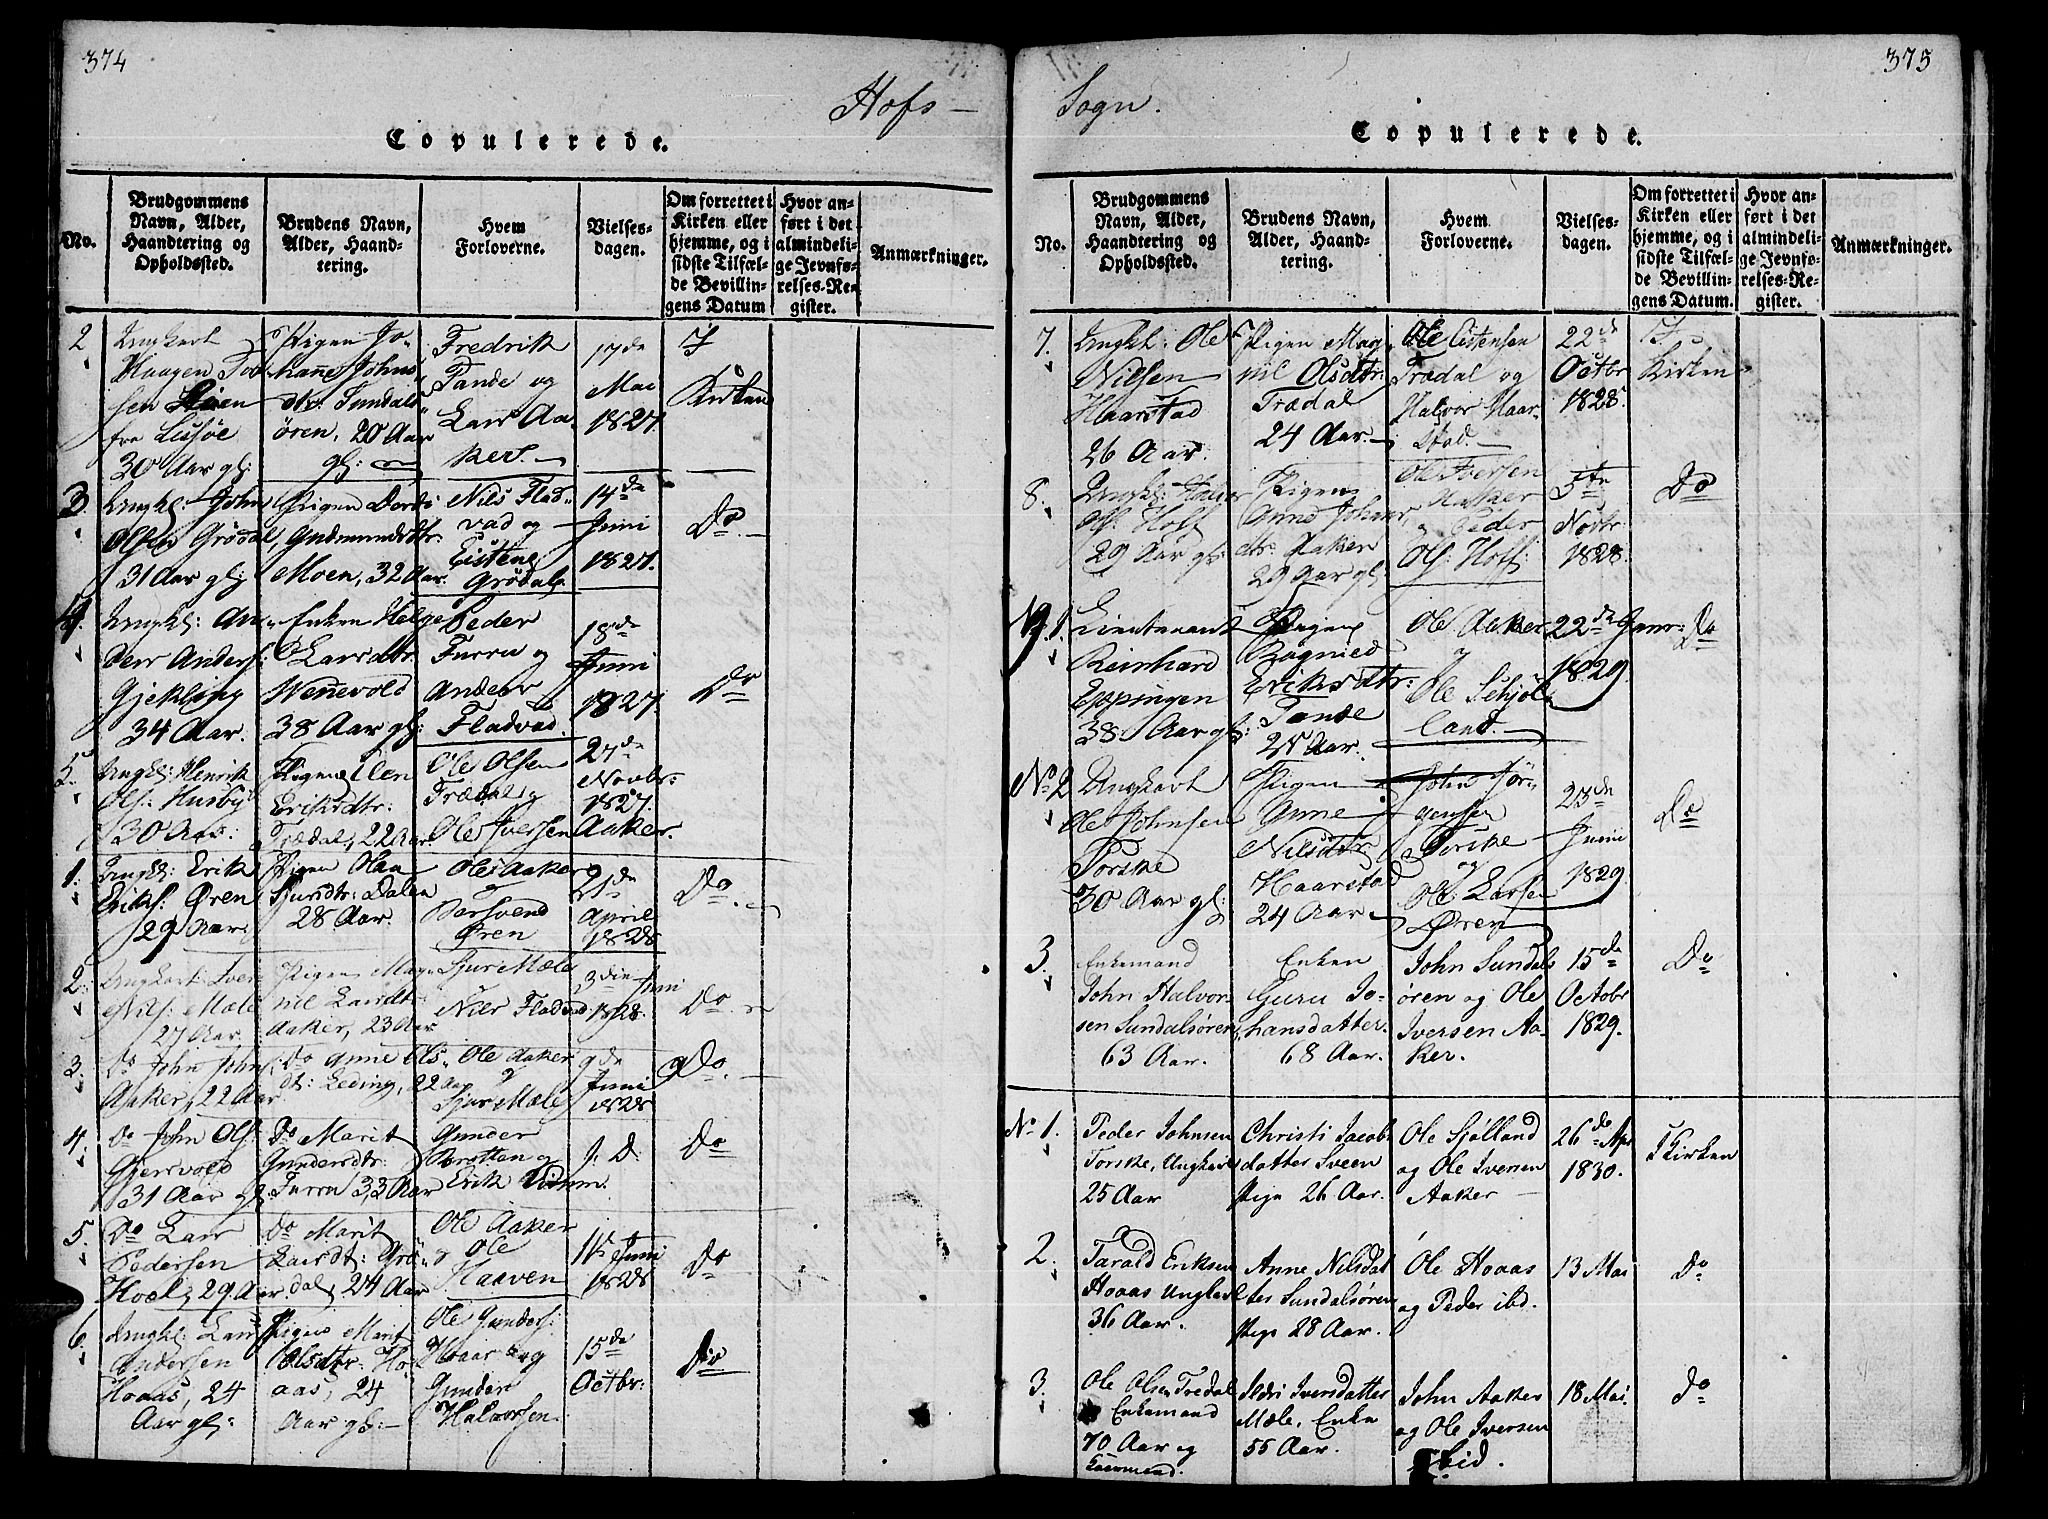 374
Hofs-
Copulerede.
No.
Brudgommens
Navn, Alder,
Haandtering og
Opholdssted.
Brudens Navn,
Alder, Haand-
tering.
Hvem
Forloverne.
Vielses-
dagen.
Om forrettet i
Kirken eller
hjemme, og i
sidste Tilfæl-
de Bevillin-
gens Datum
Hvor an-
ført i det
almindeli-
ge Jevnfø-
relses-Re-
gister.
Anmærkninger.
2
Ungkarl
Haagen To-
sen
fra
30 Aar gl:
Pigen Jo-
hanne Johns
dtr: Sundals
ören, 20 Aar
gl:
Fredrik
Tande og
Lars Aa
ker.
17de
Mai
1827.
I
Kirken
3
Ungk: John
Olsen Grödal,
31 Aar gl:
Pigen Dordi
Gudmundsdtr.
Moen, 32 Aar.
Nils Flad-
vad og
Eisten
Grödal
14de
Juni
1827.
Do
4.
Ungk: An-
ders Anders:
Gjekling
34 Aar.
Enken Helge
Larsdtr.
Wennevold
38 Aar gl:
Peder
Furru og
Anders
Fladvad.
18de
Juni
1827.
Do
5.
Ungk: Henrik
Ols: Husby
30 Aar:
Pigen Elen
Eriksdtr:
Trædal, 22 Aar.
Ole Olsen
Trædal og
Ole Iversen Aaker.
27de
Novbr:
1827.
1.
Ungk: Erik
Eriks: Øren
29 Aar
Pigen Olaa
Sjursdtr: Dalen
28 Aar.
Ole Aaker
Torsvend
Øren
21de
April
1828
Do.
2.
Ungkarl: Iver
Nils: Mæle
27 Aar,
Pigen Mag-
nil Larsdt:
Aaker, 23 Aar
Sjur Mæle
Nils Fladvad
3die Juni
1828.
Do.
3.
Do John John:
Aaker, 22 Aar
Do Anne Ols-
dt: Leding, 22 Aar
Ole Aaker
og
Sjur Mæle
9de
Juni
1828
Do.
4.
Do John Ols:
Gjersvold
31 Aar gl:
Do Marit
Gundersdtr:
Furru 33 Aar
Gunder
Brotten og
Erik Vidum.
s: D:
Do
5.
Do Lars
Pedersen
Hoel, 29 Aar
Do Marit
Larsdt: Grö-
dal, 24 Aar
Ole Aaker
og Ole
Haaven
11te Juni
1828
Do
6.
Ungk: Lars
Andersen
Hoaas, 24
Aar gl:
Pigen Marit
Olsdtr: Ho-
aas, 24
Aar gl:
Ole Gunders:
Hoaas og
Gunder
Halvorsen.
15de
Octbr:
Do
375
Sogn.
Copulerede.
No.
Brudgommens
Navn, Alder,
Haandtering og
Opholdssted.
Brudens Navn,
Alder, Haand-
tering.
Hvem
Forloverne.
Vielses-
dagen.
Om forrettet i
Kirken eller
hjemme, og i
sidste Tilfæl-
de Bevillin-
gens Datum.
Hvor an-
ført i det
almindeli-
ge Jevnfø-
relses-Re-
gister.
Anmærkninger.
7.
Ungk: Ole
Nilsen
Haarstad
26 Aar.
Pigen Mag-
nil Olsdtr:
Trædal
24 Aar.
Ole Eistensen
Trædal og
Halvor Haar-
stad.
22de
Octbr
1828.
I
Kirken
8.
Ungk: Halvor
Ols: Hoff
29 Aar gl:
Pigen
Anne Johans
dtr: Aaker
29 Aar gl:
Ole Iversen
Aaker
og Peder
Ols: Hoff:
5te
Novbr:
1828.
Do
No. 1.
Lieutenant
Reinhard
Eppingen
38 Aar gl:
Pigen
Ragnild
Eriksdtr:
Tande
25 Aar.
Ole Aaker
og
Ole Schjöl-
land.
22de Januar:
1829.
Do
No 2
Ungkarl
Ole Johnsen
Torske
30 Aar gl:
Pigen
Anne
Nilsdtr
Haarstad
24 Aar.
John Jör-
gensen
Torske
og
Ole Larsen
Øren
23de
Juni
1829.
Do
3.
Enkemand
John Halvor-
sen Sundalsören
63 Aar.
Enken
Guru Jo-
hansdatter.
68 Aar.
John Sundals
ören og Ole
Iversen Aa-
ker.
15de
Octobr
1829.
Do
No 1.
Peder Johnsen
Torske, Ungkarl
25 Aar
Christi Jacobs
datter Sveen
Pige 26 Aar.
Ole Sjölland
og Ole Iversen
Aaker
26de Apr
1830.
I Kirken
2.
Tarald Eriksen
Hoaas Ungkarl
36 Aar.
Anne Nilsdat
ter Sundalsören
Pige 28 Aar.
Ole Hoaas
og Peder ibd.
13 Mai
Do
3.
Ole Olsen Tredal
Enkemand
70 Aar og
Iversdatter
Mæle, Enke
55 Aar.
John Aaker
og Ole Iversen
ibid.
18 Mai.
Do